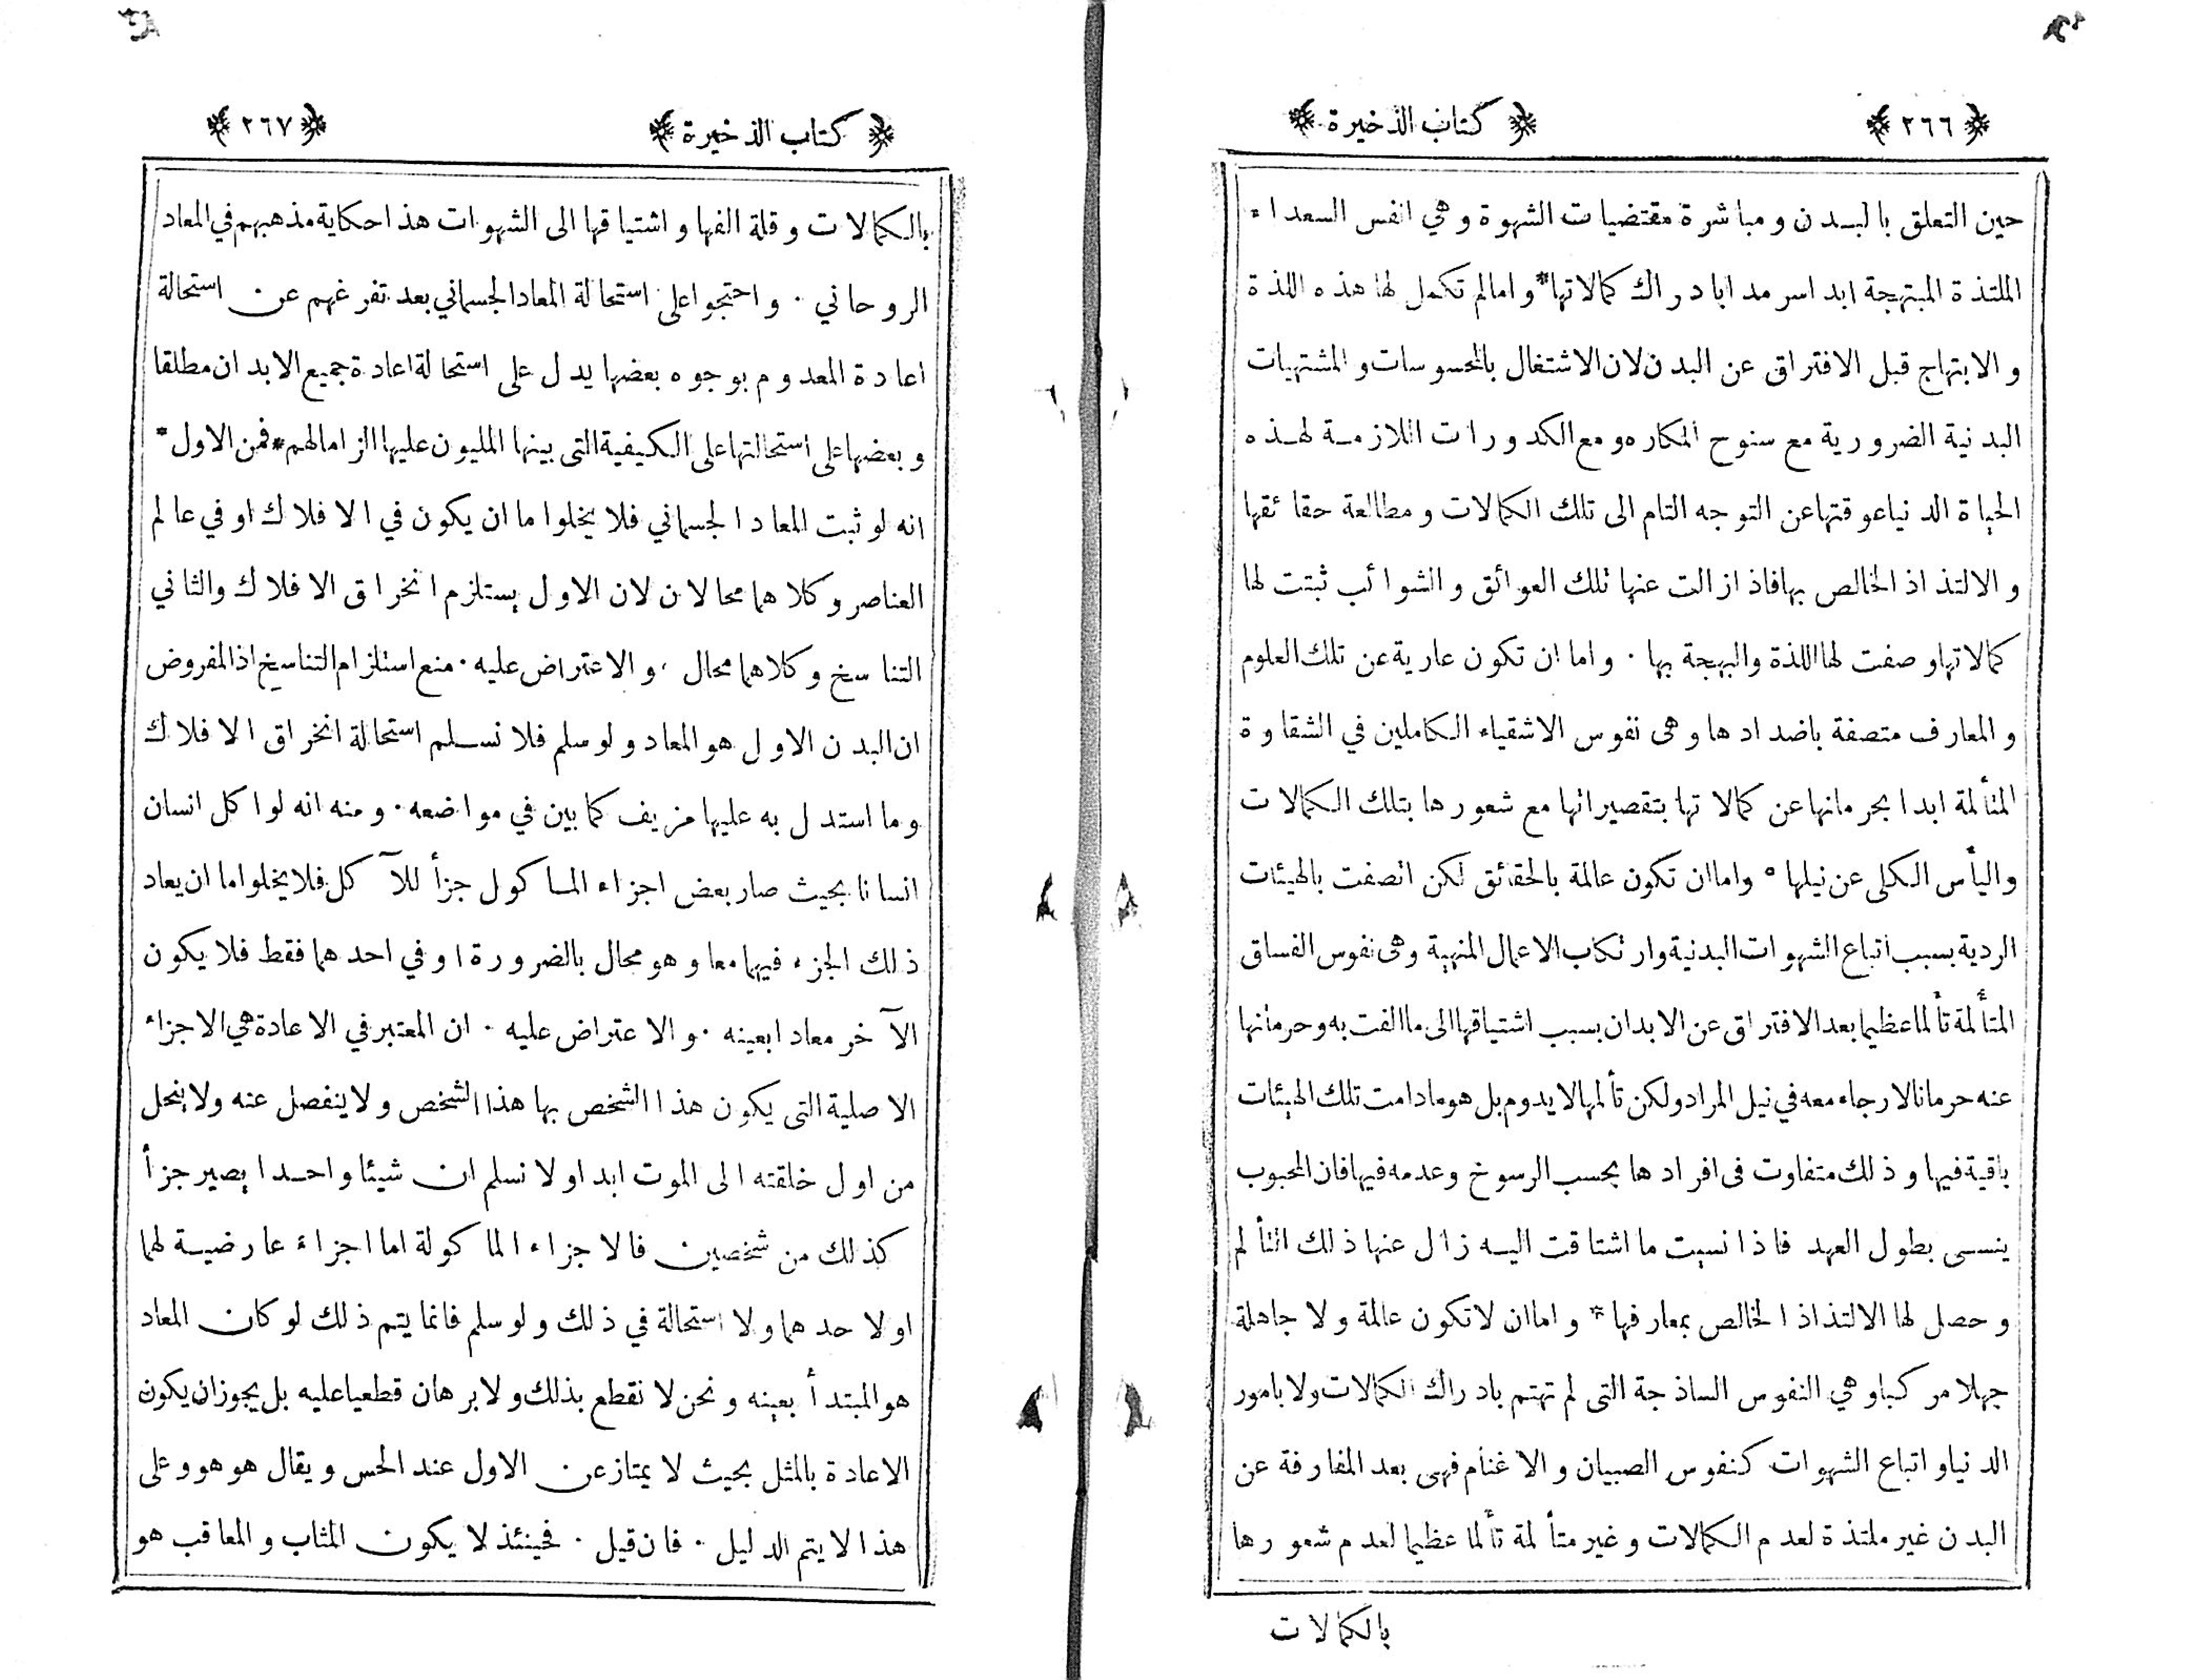 ﴿ ٢٦٦ ﴾ ﴿ كتاب الذخيرة ﴾
حين التعلق بالبدن ومباشرة مقتضيات الشهوة وهي انفس السعداء
الملتذة المبتهجة ابدا سرمدا بادراك كمالاتها * وامالم تكمل لها هذه اللذة
والابتهاج قبل الافتراق عن البدن لان الاشتغال بالمحسوسات والمشتهيات
البدنية الضرورية مع سنوح المكاره ومع الكدورات اللازمة لهذه
الحياة الدنيا عوقتها عن التوجه التام الى تلك الكمالات ومطالعة حقائقها
والالتذاذ الخالص بها فاذا زالت عنها تلك العوائق والشوائب ثبتت لها
كمالاتها وصفت لها اللذة والبهجة بها . واما ان تكون عارية عن تلك العلوم
والمعارف متصفة باضدادها وهى نفوس الاشقياء الكاملين في الشقاوة
المتألمة ابدا بحرمانها عن كمالاتها بتقصيراتها مع شعورها بتلك الكمالات
واليأس الكلى عن نيلها ° واما ان تكون عالمة بالحقائق لكن اتصفت بالهيئات
الردية بسبب اتباع الشهوات البدنية وارتكاب الاعمال المنهية وهى نفوس الفساق
المتألمة تألما عظيما بعد الافتراق عن الابدان بسبب اشتياقها الى ما الفت به وحرمانها
عنه حرمانا لا رجاء معه في نيل المراد ولكن تألمها لا يدوم بل هو مادامت تلك الهيئات
باقية فيها وذلك متفاوت فى افرادها بحسب الرسوخ وعدمه فيها فان المحبوب
ينسى بطول العهد فاذا نسيت ما اشتاقت اليه زال عنها ذلك التألم
وحصل لها الالتذاذ الخالص بمعارفها * واما ان لا تكون عالمة ولا جاهلة
جهلا مركبا وهي النفوس الساذجة التى لم تهتم بادراك الكمالات ولا بامور
الدنيا واتباع الشهوات كنفوس الصبيان والاغنام فهى بعد المفارقة عن
البدن غير ملتذة لعدم الكمالات وغير متألمة تألما عظيما لعدم شعورها
بالكمالات
﴿ كتاب الذخيرة ﴾ ﴿ ٢٦٧ ﴾
بالكمالات وقلة الفها واشتياقها الى الشهوات هذا حكاية مذهبهم في المعاد
الروحاني . واحتجوا على استحالة المعاد الجسماني بعد تفرغهم عن استحالة
اعادة المعدوم بوجوه بعضها يدل على استحالة اعادة جميع الابدان مطلقا
وبعضها على استحالتها على الكيفية التى بينها المليون عليها الزاما لهم * فمن الاول *
انه لو ثبت المعاد الجسماني فلا يخلوا ما ان يكون في الافلاك او في عالم
العناصر وكلاهما محالان لان الاول يستلزم انخراق الافلاك والثاني
التناسخ وكلاهما محال . والاعتراض عليه . منع استلزام التناسخ اذ المفروض
ان البدن الاول هو المعاد ولو سلم فلا نسلم استحالة انخراق الافلاك
وما استدل به عليها مزيف كما بين في مواضعه . ومنه انه لو اكل انسان
انسانا بحيث صار بعض اجزاء الماكول جزأ للآكل فلا يخلوا ما ان يعاد
ذلك الجزء فيهما معا وهو محال بالضرورة او في احدهما فقط فلا يكون
الآخر معادا بعينه . والاعتراض عليه . ان المعتبر في الاعادة هي الاجزاء
الاصلية التى يكون هذا الشخص بها هذا الشخص ولا ينفصل عنه ولا ينحل
من اول خلقته الى الموت ابدا ولا نسلم ان شيئا واحدا يصير جزأ
كذلك من شخصين فالاجزاء الماكولة اما اجزاء عارضية لهما
او لاحدهما ولا استحالة في ذلك ولو سلم فانما يتم ذلك لو كان المعاد
هو المبتدأ بعينه ونحن لا نقطع بذلك ولا برهان قطعيا عليه بل يجوز ان يكون
الاعادة بالمثل بحيث لا يمتاز عن الاول عند الحس ويقال هو هو وعلى
هذا لا يتم الدليل . فان قيل . فحينئذ لا يكون المثاب والمعاقب هو